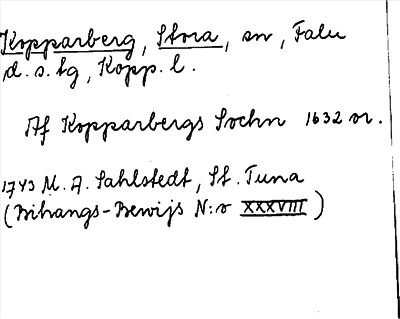 Kopparberg, Stora, sn, Falu
d.s.tg, Kopp. l.
Af Kopparbergs Sochn 1632 or.
1743 M. A. Sahlstedt, St. Tuna
(Bihangs-Bewijs N:o XXXVIII)